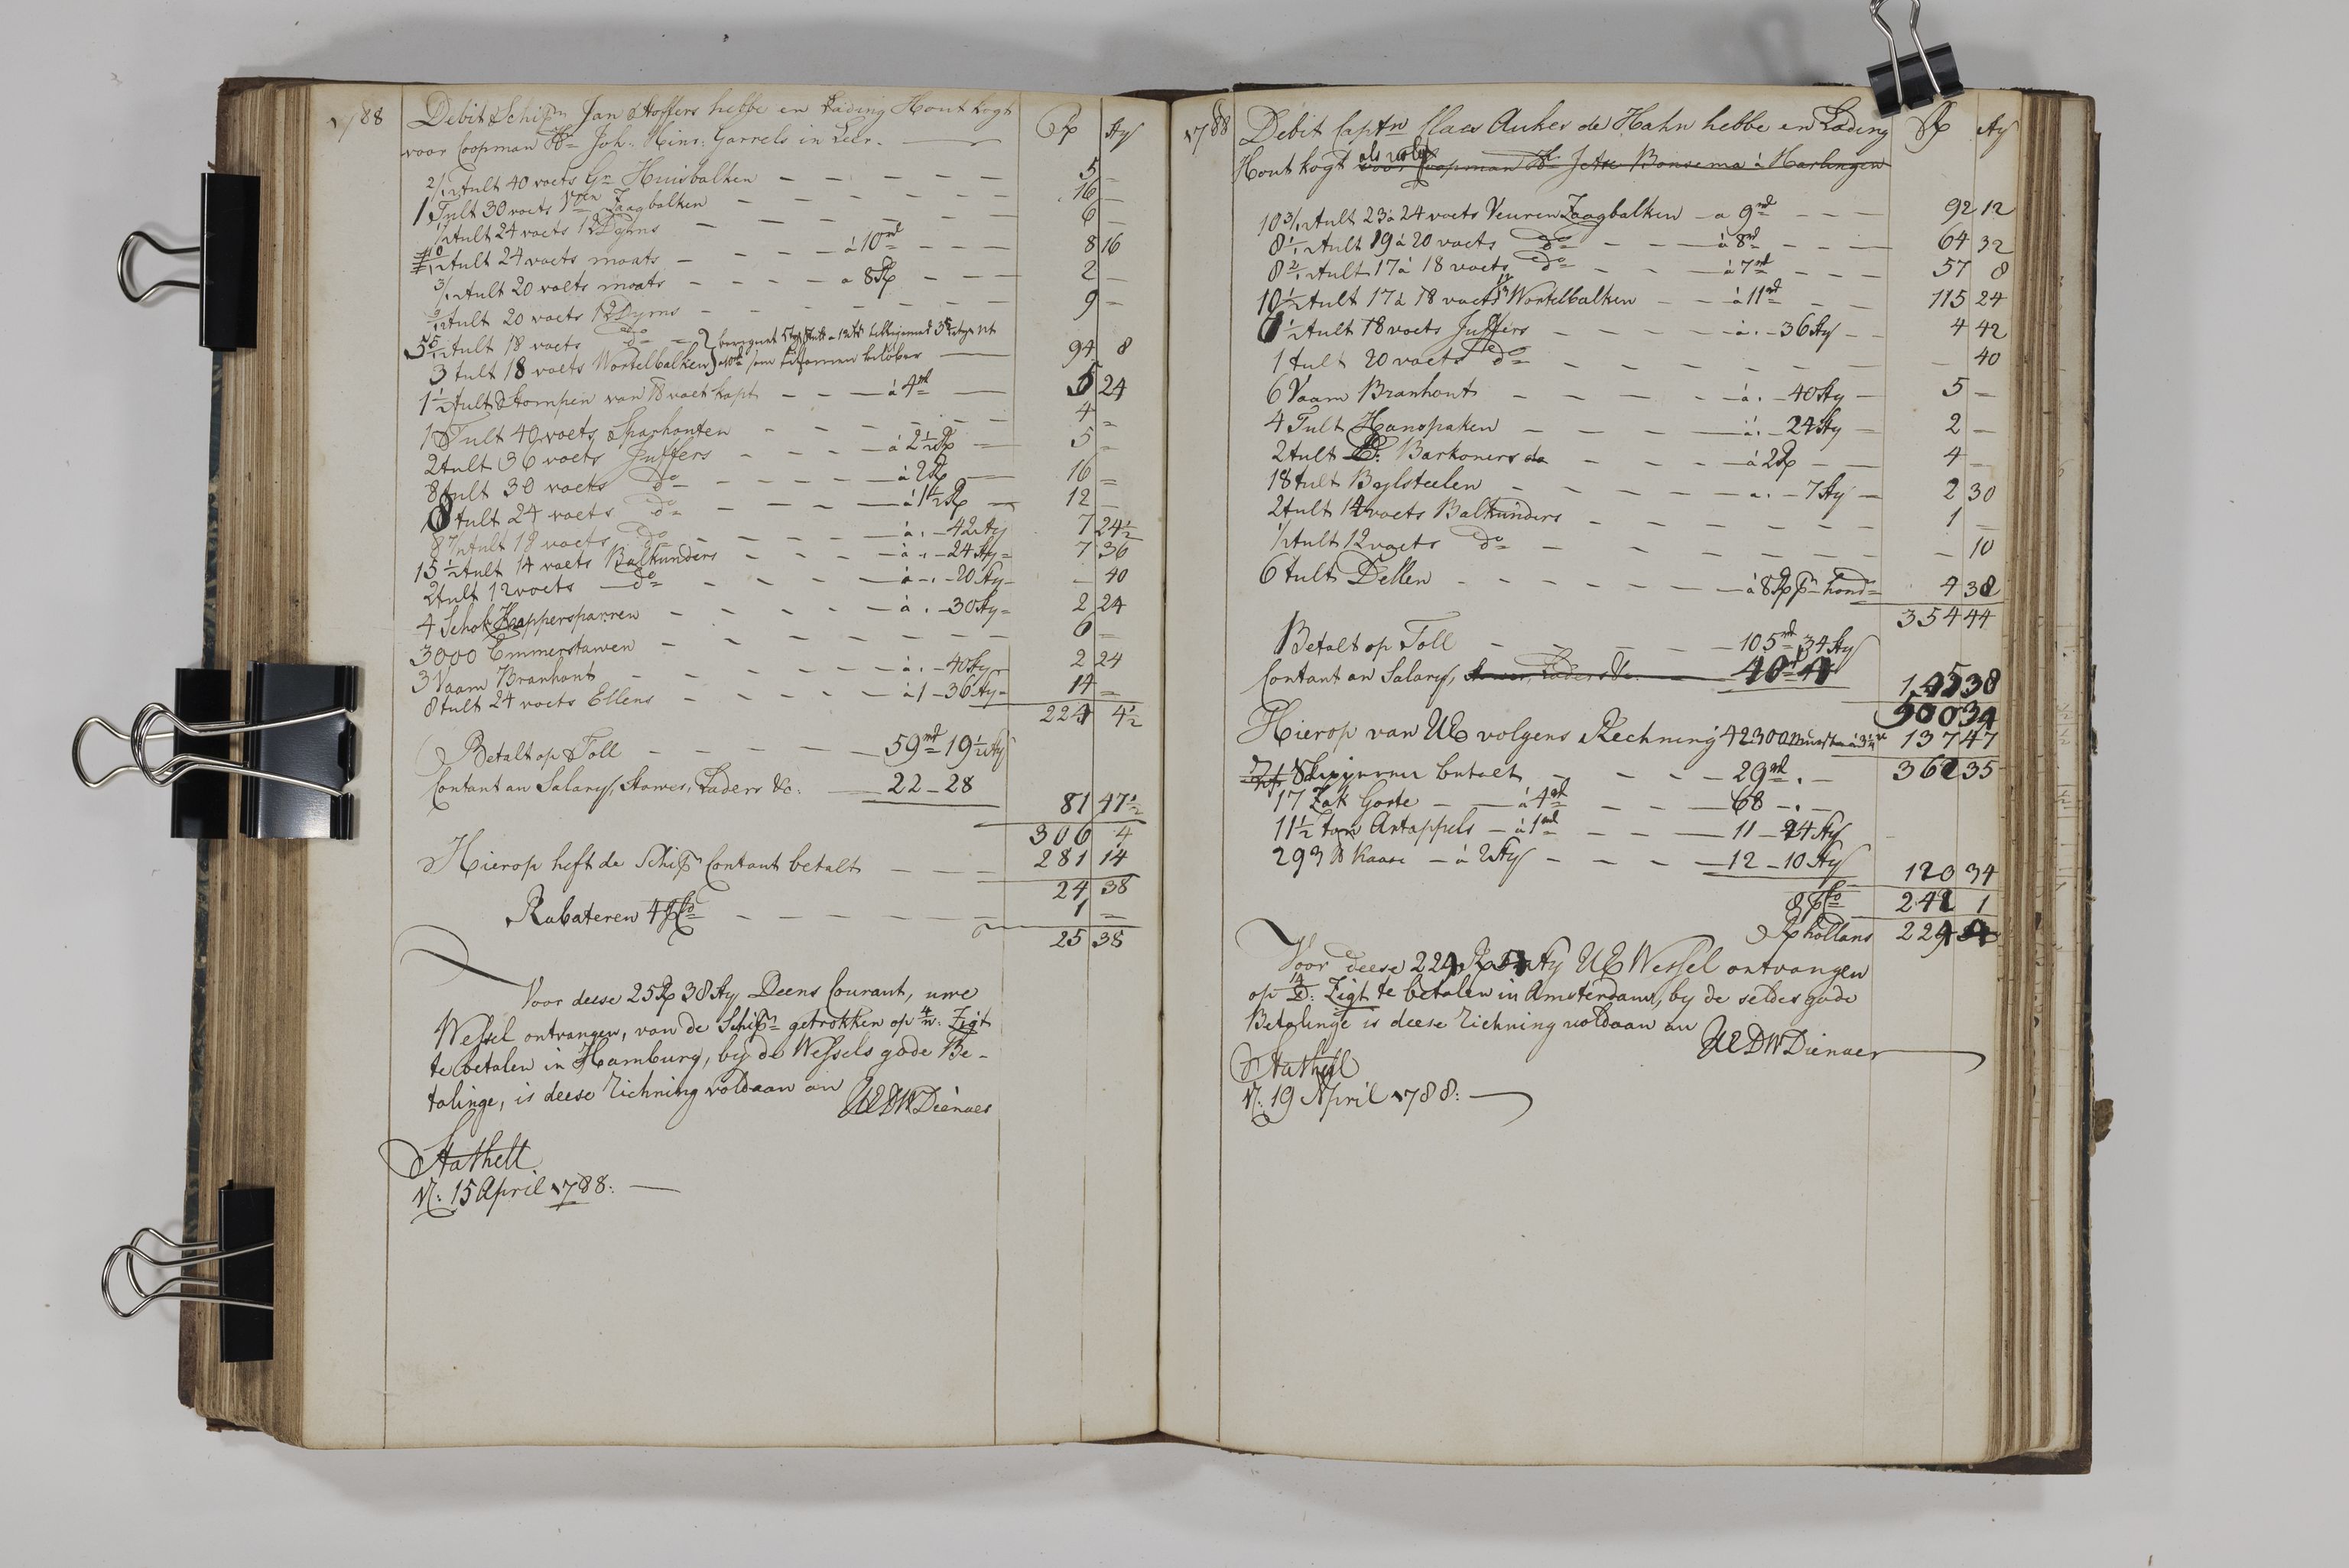 1788
Debit Schipr Jan Stoffers hebbe en Lading Hout kogt Rx sty
voor Coopman Hr Joh: Hinr: Garrels in Leer.
2/12 tult 40 voets Gr Huisbalken 5 –
1 Tult 30 voets Zaagbalken 16 –
1/2 tult 24 voets 12 Dyms 6 –
10/12 tult 24 voets moats à 10 rd 8 16
3/12 tult 20 voets moats a 8 Rx 2 –
tult 20 voets 12 Dyms 9 –
5 5/12 tult 18 voets do
3 tult 18 voets Wortelbalken 94 8
1 1/2 tult Stompen van 18 voet kapt à 4 rd 5 24
1 Tult 40 voets Sparhouten 4 =
2 tult 36 voets Juffers à 2 1/2 Rx 5 =
8 tult 30 voets do à 2 Rx 16 =
8 tult 24 voets do à 1 1/2 Rx 12 –
8 7/12 tult 18 voets do à . – 42 sty 7 24 1/2
15 1/2 tult 14 voets Balkunders à . – 24 sty 7 36
2 tult 12 voets do à – . – 20 sty – 40
4 Schok Kappersparren à . – 30 sty 2 24
3000 Emmerstawen 6 =
3 Vaam Branhout à . – 40 sty 2 24
8 tult 24 voets Ellens à 1 – 36 sty 14 =
224 4 1/2
Betalt op Toll 59 rd 19 1/2 sty
Contant an Salary, Stower, Laders &c: 22 – 28
81 47 1/2
306 4
Hierop heft de Schipr Contant betalt 281 14
24 38
Rabateren 4 pCto 1 =
25 38
Voor deese 25 Rx 38 sty Deens Courant, uwe
Wessel ontvangen, van de Schipr getrokken op Zigt
te betalen in Hamburg, by de Wessels gode Be-
talinge, is deese Riehning voldaan an
UEDWDienaer
Stathell
d: 15 April 1788:
1788
Debit Captn Claes Aukes de Hahn hebbe en Lading Rx sty
Hout kogt als volgt voor Coopman Hr Jetse Bonsema à Harlingen
10 3/12 tult 23 à 24 voets Veuren Zaagbalken a 9 rd 92 12
8 1/12 tult 19 à 20 voets do à 8 rd 64 32
8 2/12 tult 17 à 18 voets do à 7 rd 57 8
10 1/2 tult 17 à 18 voets Wortelbalken à 11 rd 115 24
6 1/2 tult 18 voets Juffers à . – 36 sty 4 42
1 tult 20 voets do – 40
6 Vaam Branhout à . – 40 sty 5 –
4 Tult Hanspaken à . – 24 sty 2 –
2 tult Barkoners do à 2 Rx 4 –
18 tult Bylsteelen a . – 7 sty 2 30
2 tult 14 voets Balkunders 1 –
1/2 tult 12 voets do – 10
6 tult Dellen à 8 Rx pr hond 4 38
354 44
Betalt op Toll 105 rd 34 sty
Contant an Salary, Stower, Laders &c. 40 – 4
145 38
500 34
Hierop van UE volgens Rechning 137 47
362 35
betalt 29 rd . –
17 Zak Garte à 4 rd 68 – . –
11 1/2 ton Artappels à 1 rd 11 – 24 sty
293 lb Kaase à 2 sty 12 – 10 sty
120 34
8 pCto 242 1
Rx hollans 224
Voor deese 224 Rx sty UE Wessel ontvangen
op 14 D: Zigt te betalen in Amsterdam, by de selves gode
Betalinge is deese Riehning voldaan an
UEDWDienaer
Stathell
d: 19 April 1788: